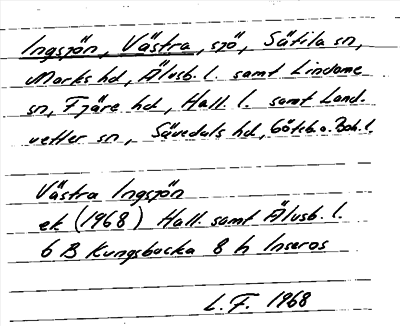 Ingsjön, Västra, sjö, Sätila sn,
Marks hd, Älvsb. l. samt Lindome
sn, Fjäre hd, Hall. l. samt Land-
vetter sn, Sävedals hd, Göteb. o. Boh. l.
Västra Ingsjön
ek (1968) Hall. samt Älvsb. l.
6 B Kungsbacka 8 h Inseros
L.F. 1968